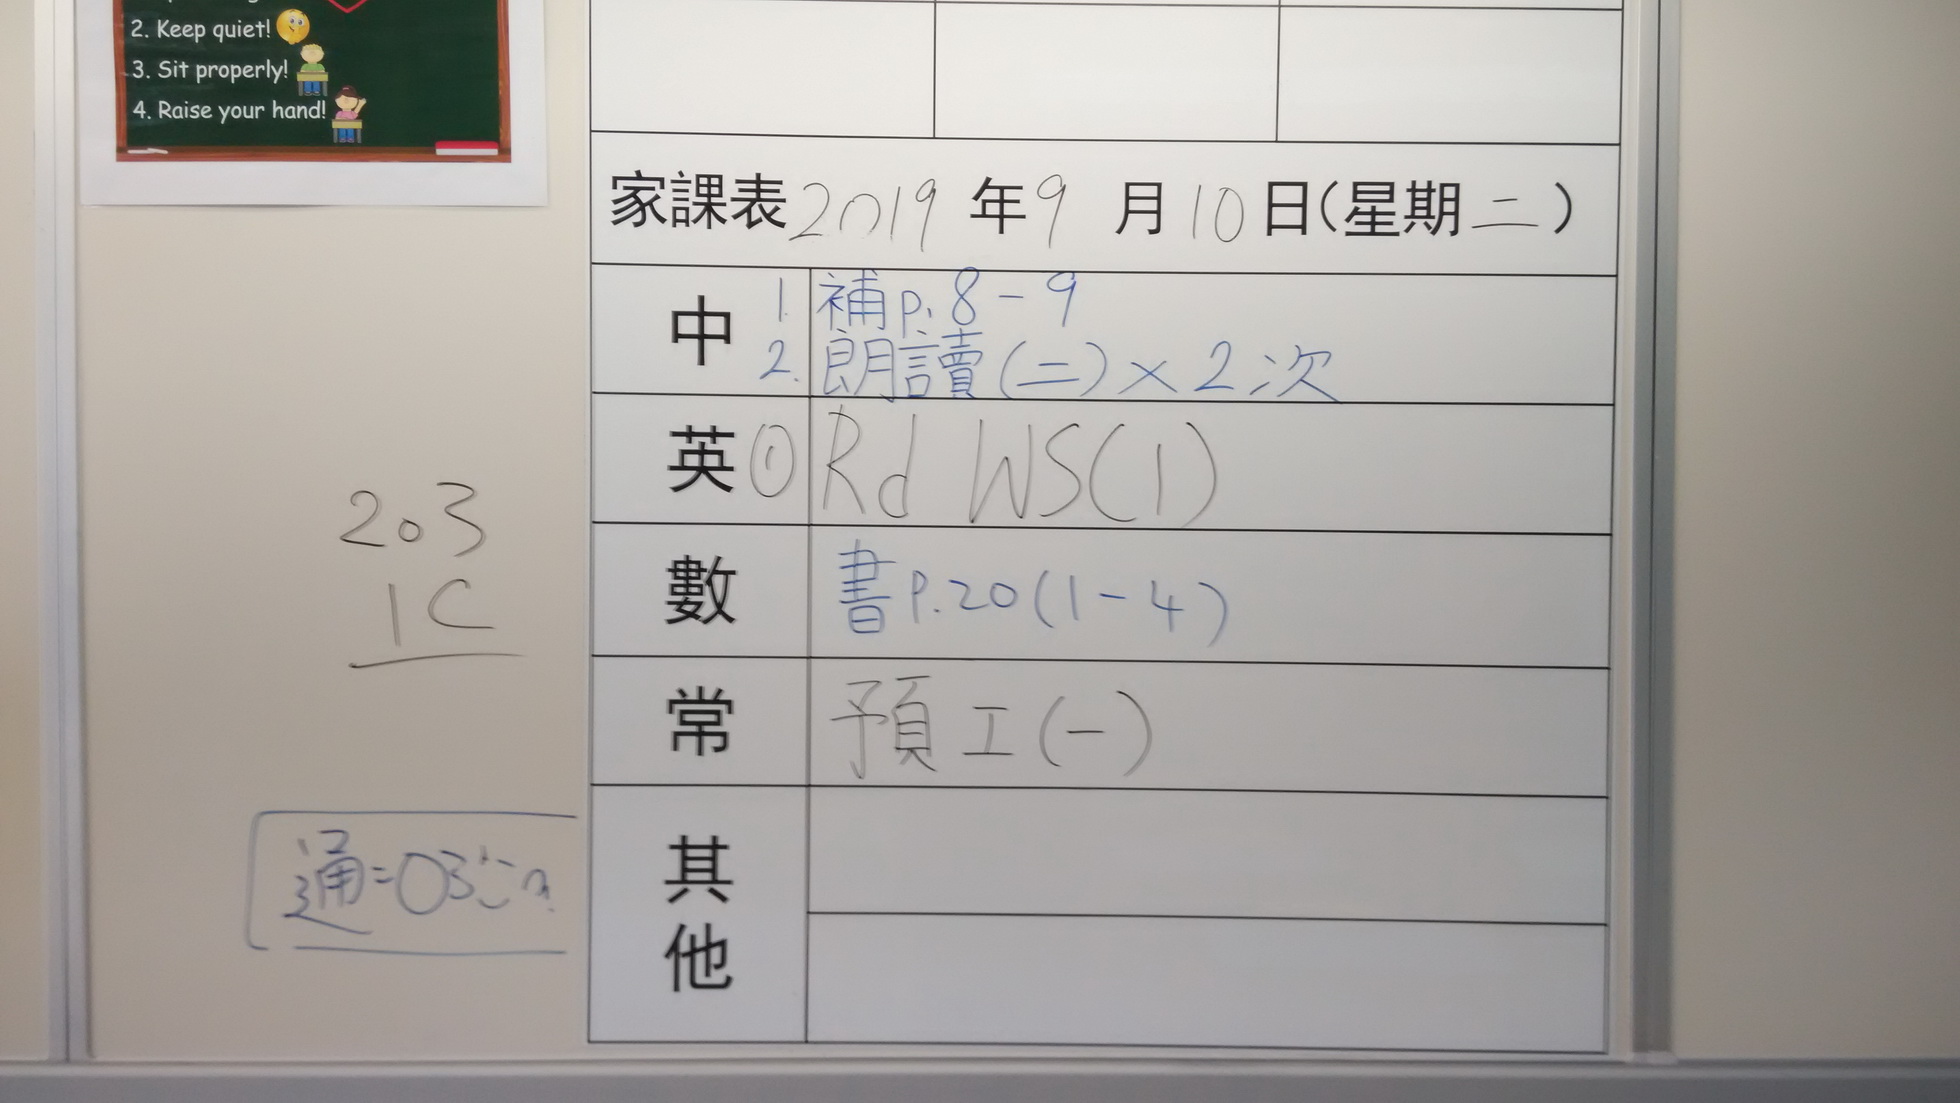 2. Keep quiet!
3. Sit properly!
4. Raise your hand!
家課表 2019 年 9 月 10 日(星期二)
中 1. 補 p. 8 - 9
2. 朗讀 (二) × 2 次
英 ① Rd WS(1)
數 書 P.20 (1 - 4)
常 預工 (一)
其他
203
1C
通=03